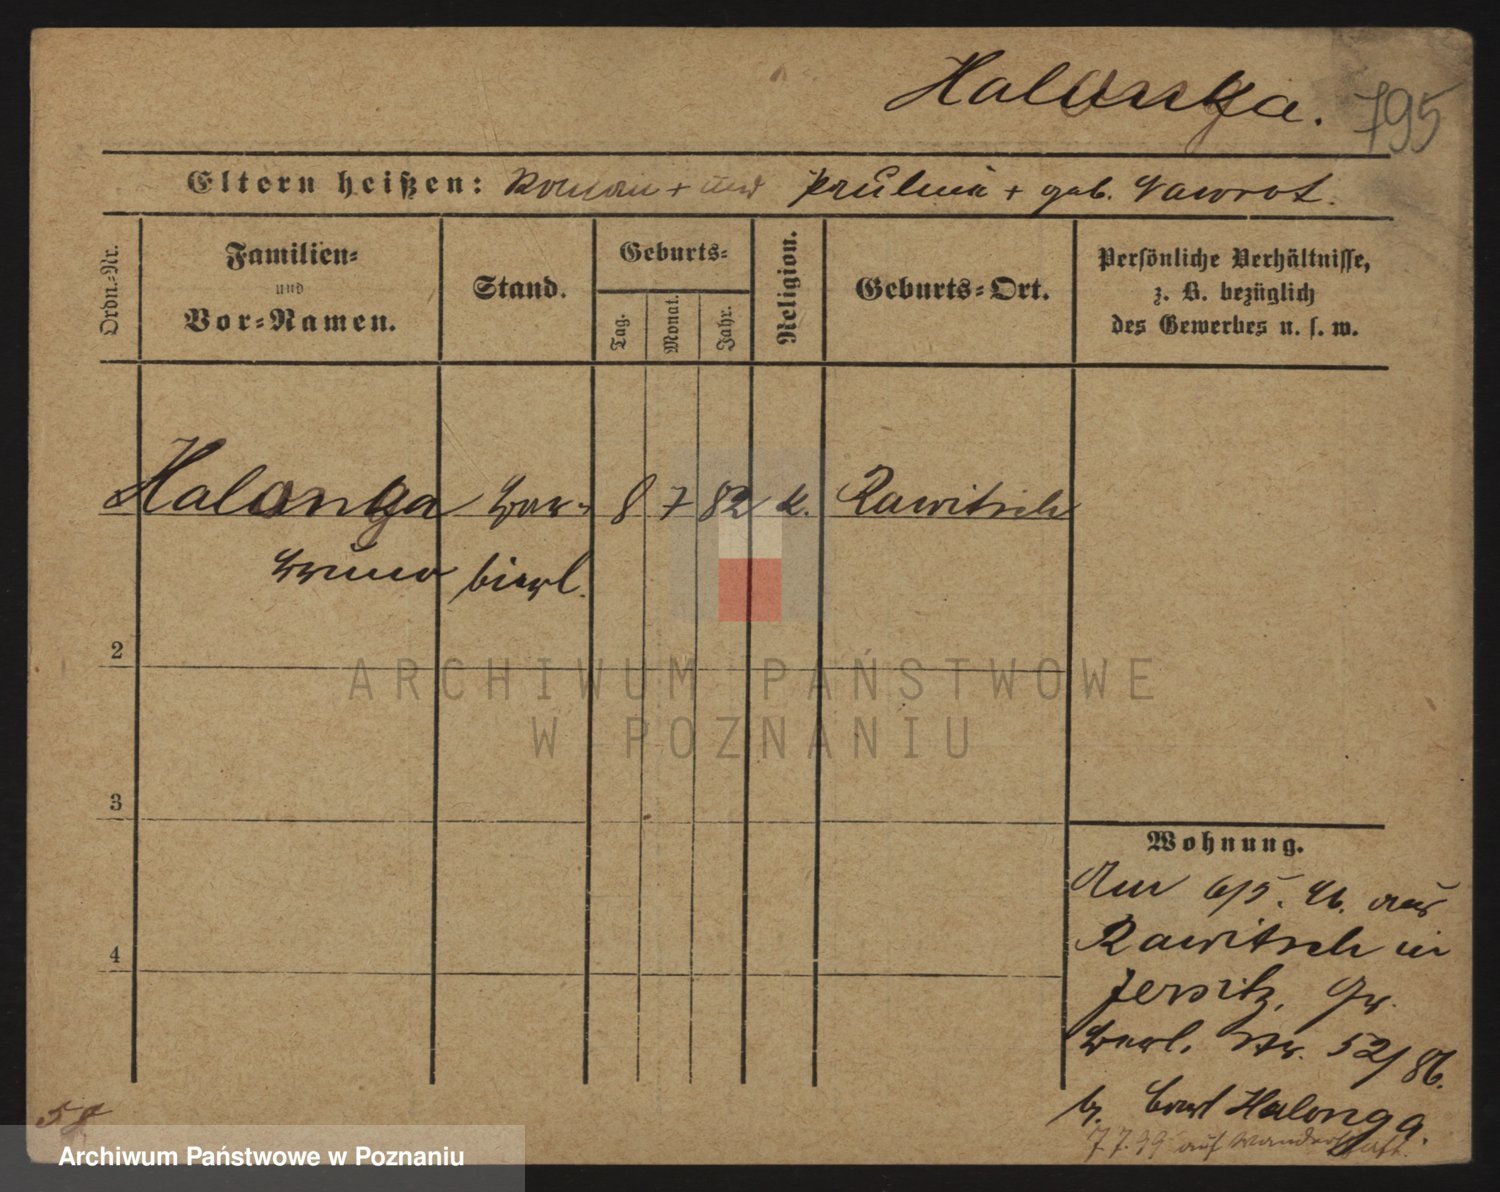 Halonga. 795
Eltern heißen: Roman + und Paulina + geb. Nawrot.
Ordn.-Nr.
Familien-
und
Vor-Namen.
Stand.
Geburts-
Tag.
Monat.
Jahr.
Religion.
Geburts-Ort.
Persönliche Verhältnisse,
z. B. bezüglich
des Gewerbes u. s. w.
Halonga Bar- 8 7 82 k. Rawitsch
Bruno bierl.
2
3
4
ARCHIWUM PAŃSTWOWE
W POZNANIU
Wohnung.
Am 6/5. 96. aus
Rawitsch in
Jersitz, Gr.
Berl. Str. 52/86.
b. Halonga.
7.7.99 auf Wanderschaft.
58
Archiwum Państwowe w Poznaniu